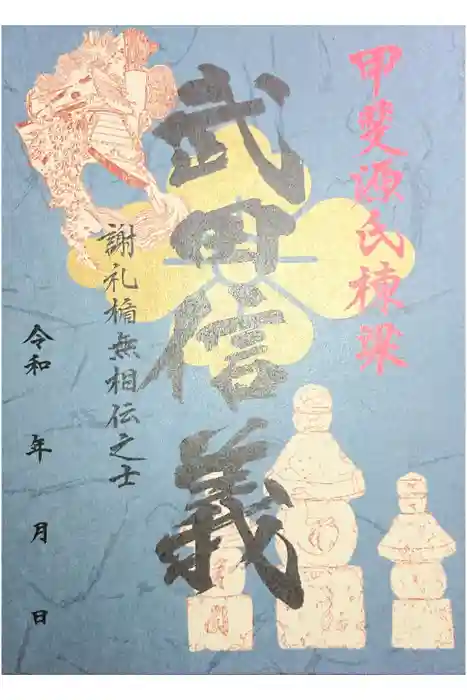 甲斐源氏棟梁
武田信義
謝礼楯無相伝之士
令和 年 月 日